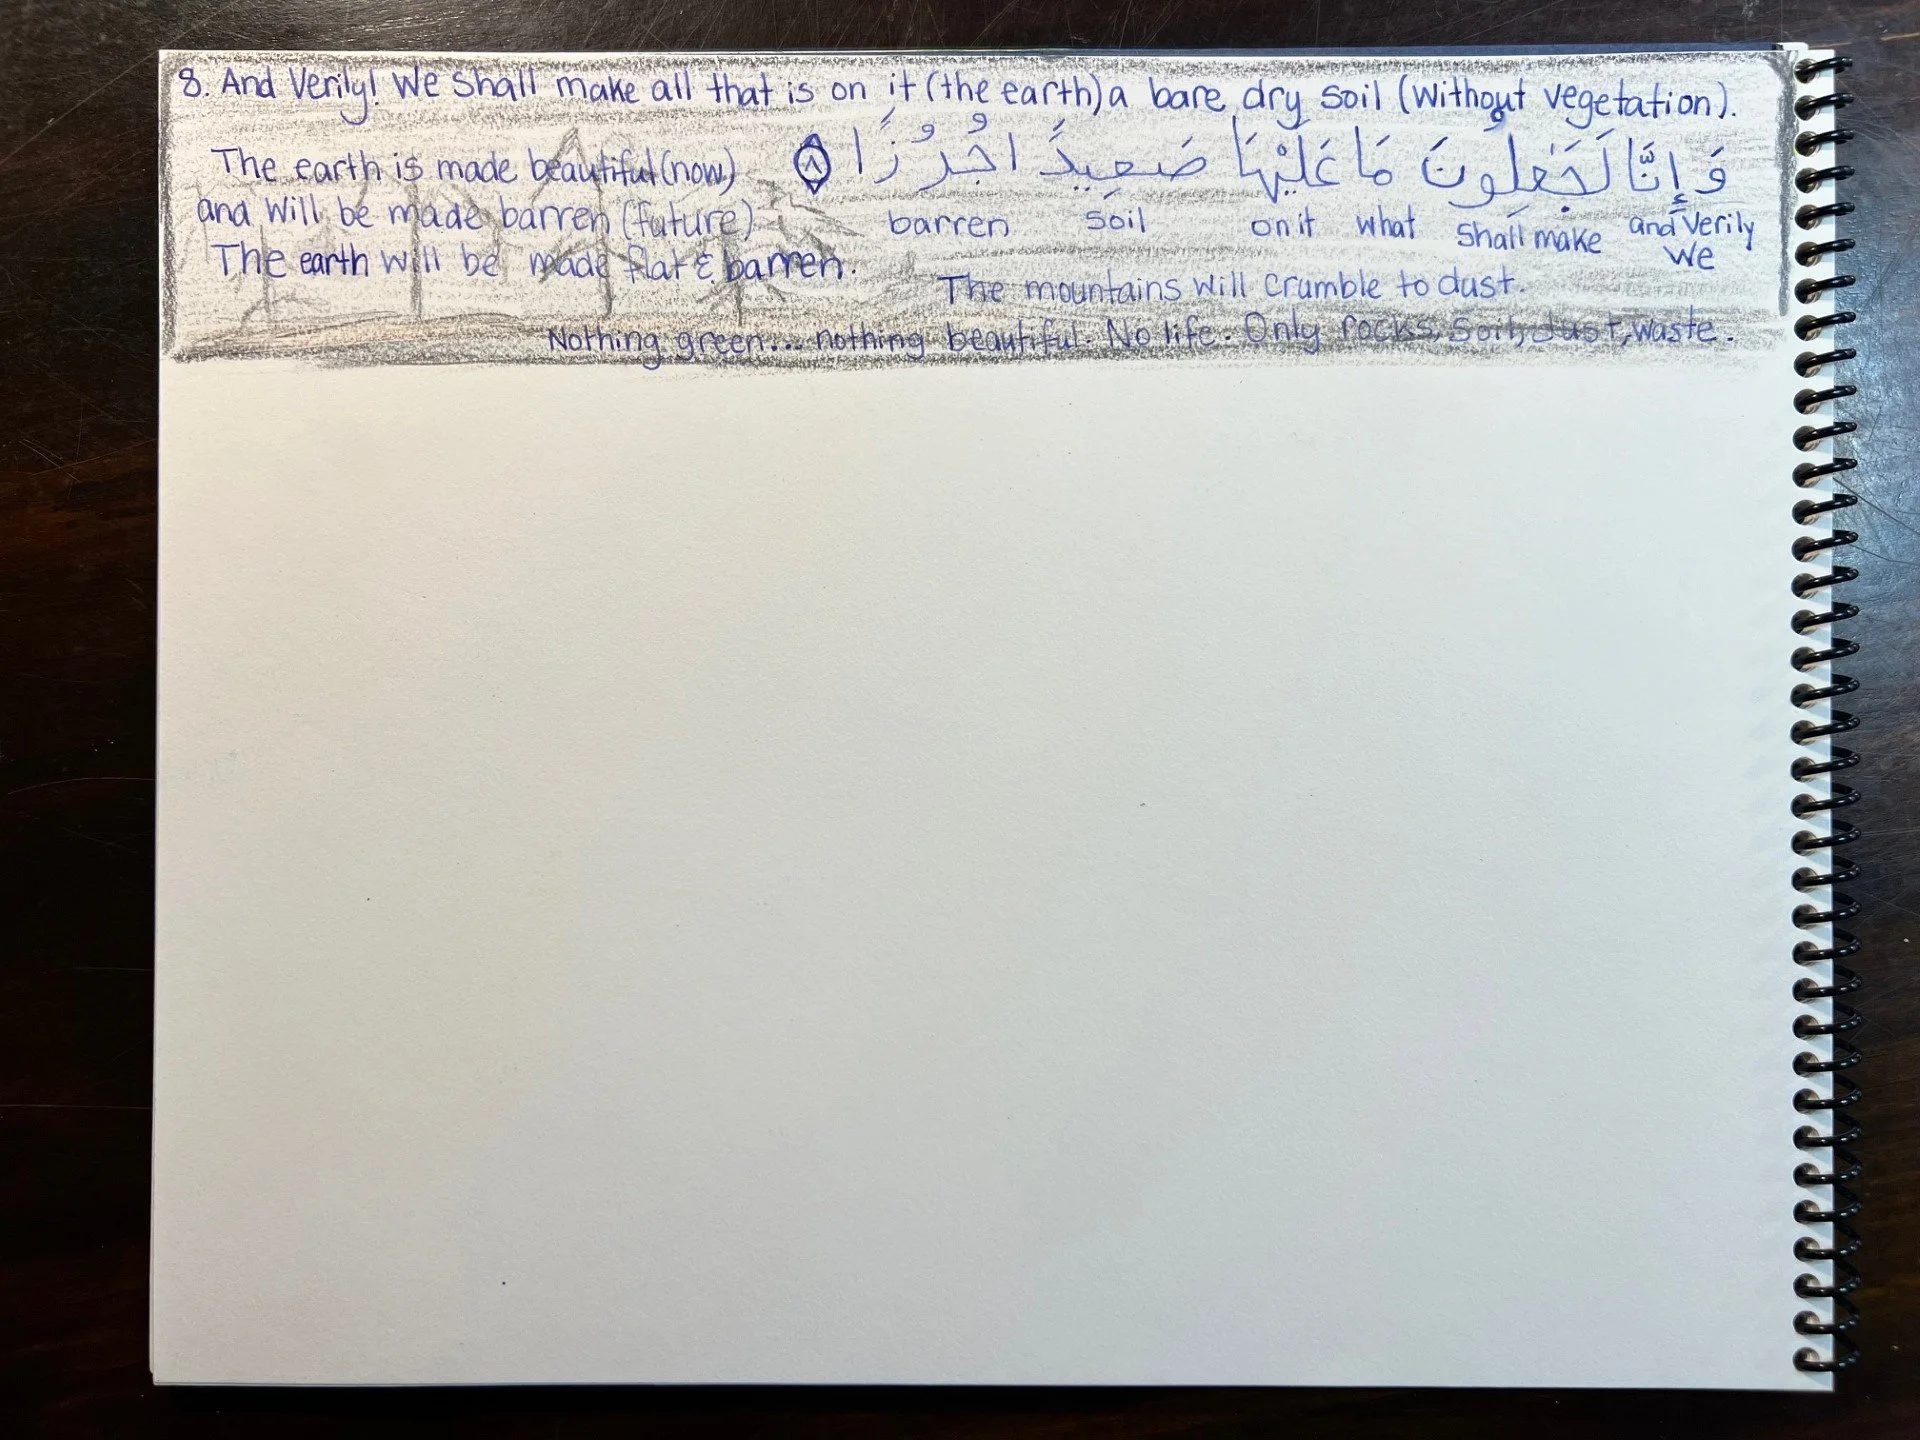 8. And Verily! We shall make all that is on it (the earth) a bare dry soil (without vegetation).
وَإِنَّا لَجَٰعِلُونَ مَا عَلَيْهَا صَعِيدًا جُرُزًا ٨
The earth is made beautiful (now)
and will be made barren (future)
The earth will be made flat & barren.
barren soil on it what shall make and Verily We
The mountains will crumble to dust.
Nothing green... nothing beautiful. No life. Only rocks, soil, dust, waste.